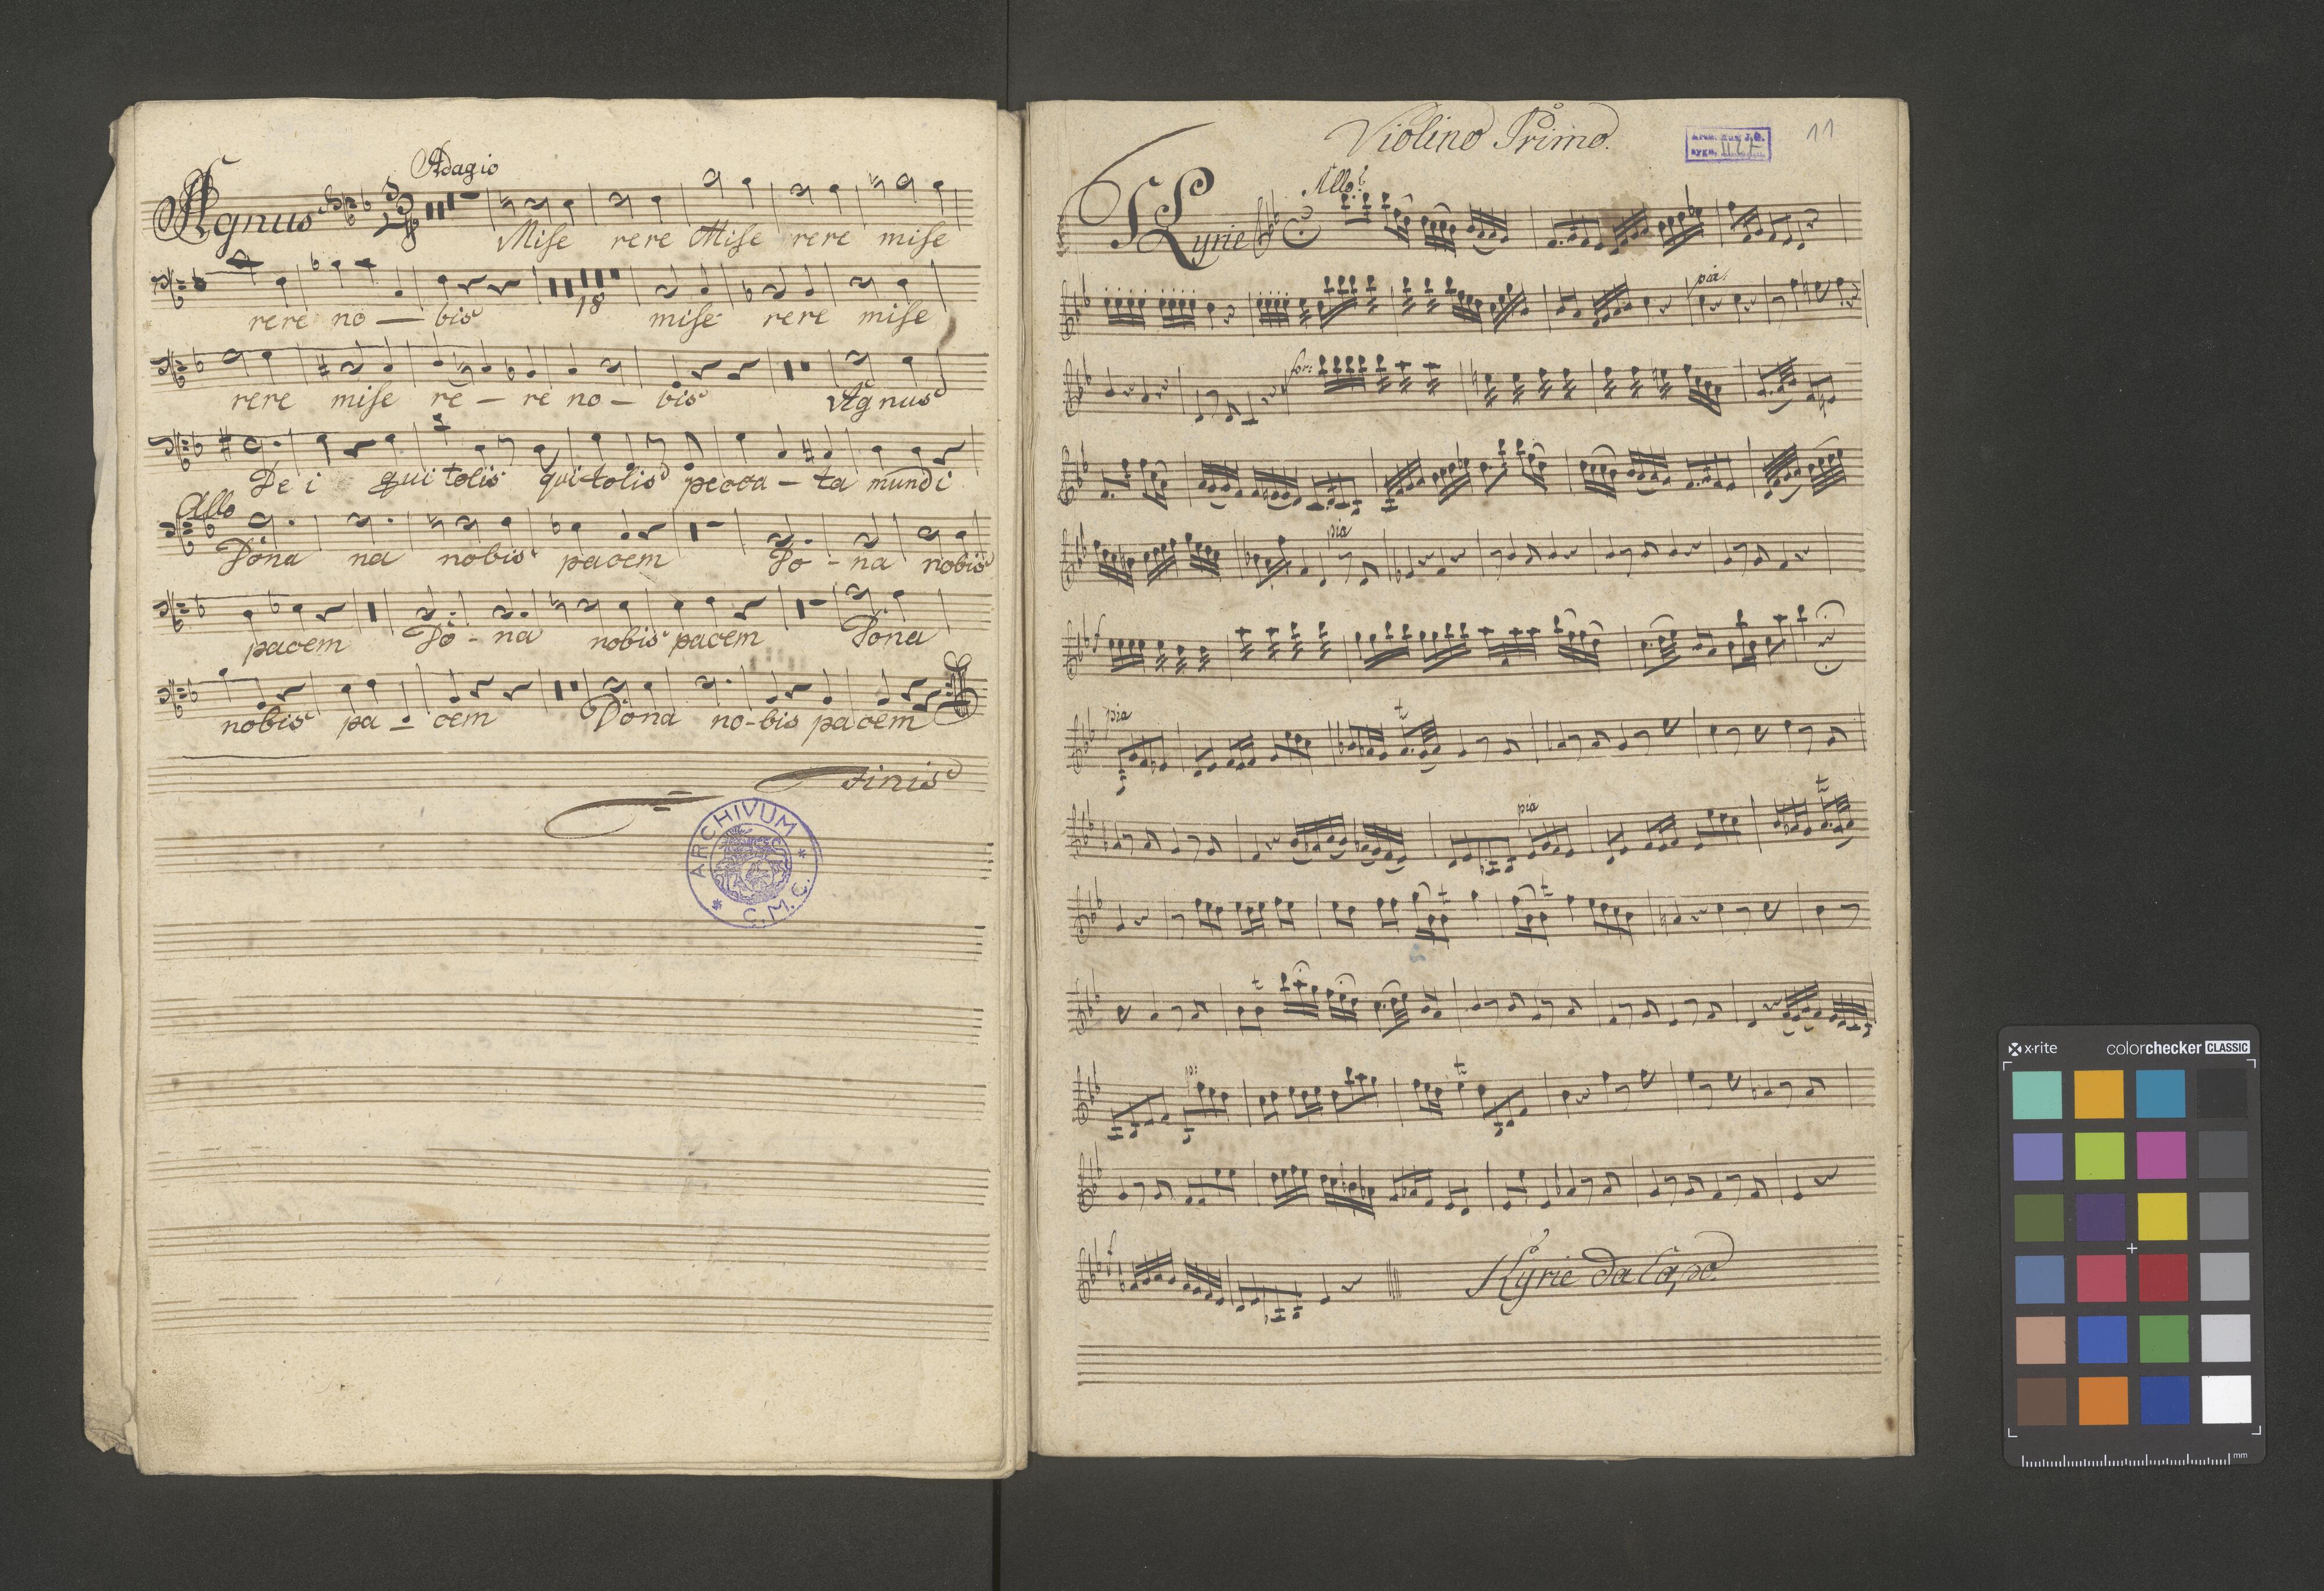 Adagio
Agnus
Mise rere Mise rere mise
rere no — bis 18 mise rere mise
rere mise re - re no - bis Agnus
De i qui tolis qui tolis pecca - ta mundi
Allo
Dona na nobis pacem Do - na nobis
pacem Do - na nobis pacem Dona
nobis pa - cem Dona no - bis pacem
Finis
ARCHIVUM C. M. C.
Violino Primo.
11
Allo
Kyrie
pia
for:
pia
pia
pia
p:
Kyrie da Capo.
x·rite colorchecker CLASSIC
mm